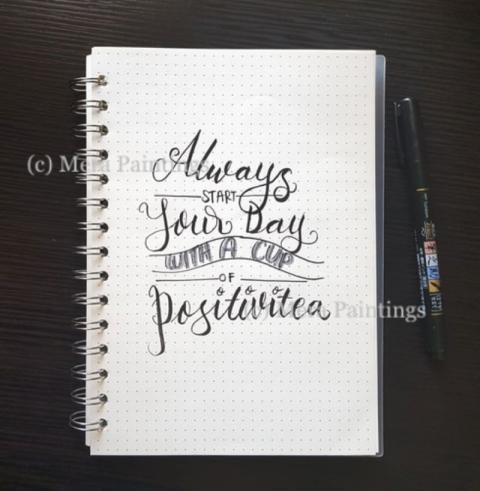 (c) Mera Paintings
Always
START
Your Day
WITH A CUP
OF
Positivitea
(c) Mera Paintings